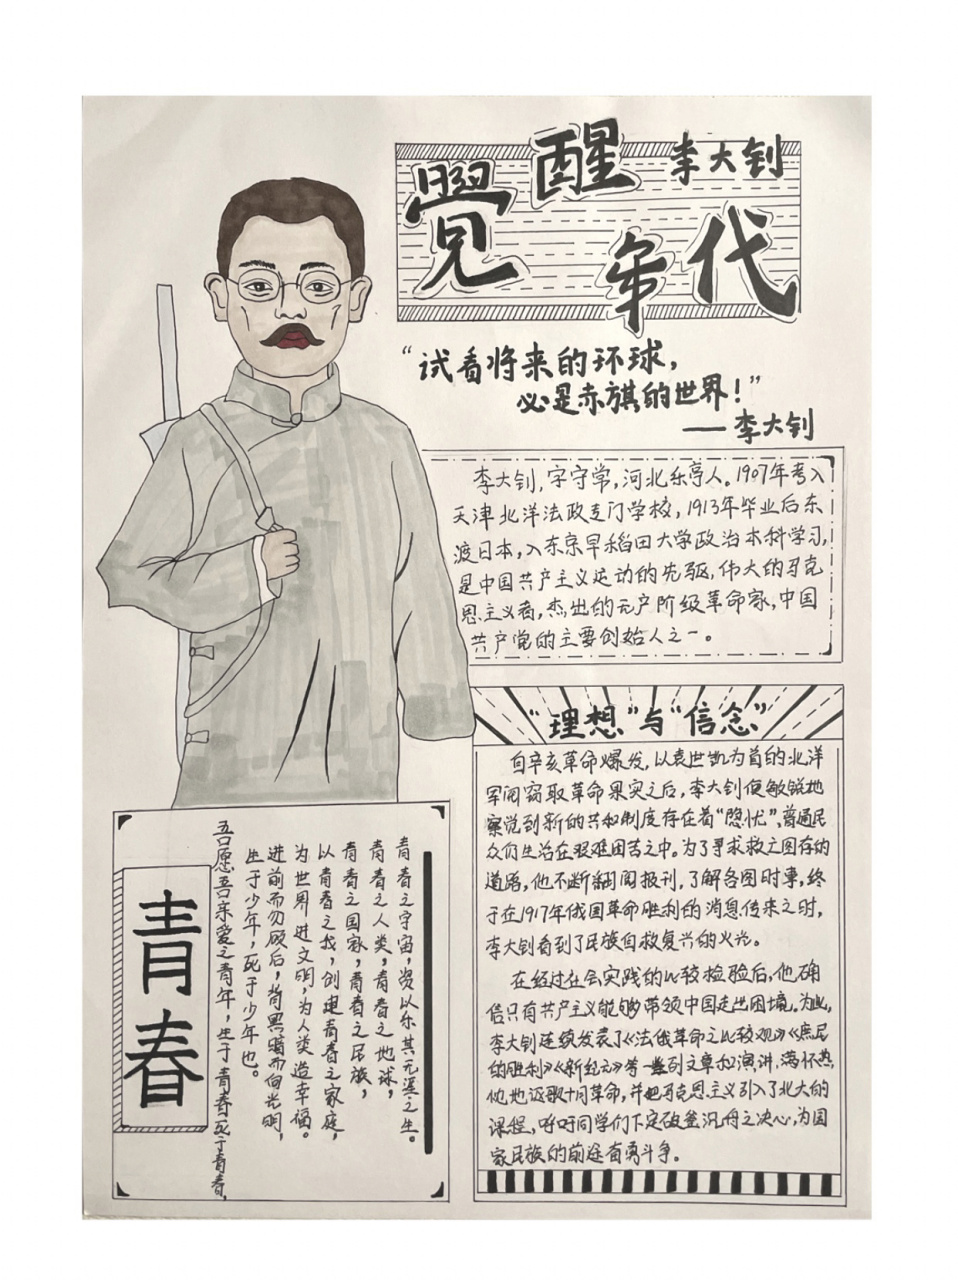 覺醒年代
李大钊
“试看将来的环球,
必是赤旗的世界!”
——李大钊
李大钊,字守常,河北乐亭人。1907年考入
天津北洋法政专门学校,1913年毕业后东
渡日本,入东京早稻田大学政治本科学习,
是中国共产主义运动的先驱,伟大的马克
思主义者,杰出的无产阶级革命家,中国
共产党的主要创始人之一。
“理想”与“信念”
自辛亥革命爆发,以袁世凯为首的北洋
军阀窃取革命果实之后,李大钊便敏锐地
察觉到新的共和制度存在着“隐忧”,普通民
众们生活在艰难困苦之中。为了寻求救亡图存的
道路,他不断翻阅报刊,了解各国时事,终
于在1917年俄国革命胜利的消息传来之时,
李大钊看到了民族自救复兴的火光。
在经过社会实践的比较检验后,他确
信只有共产主义能够带领中国走出困境。为此,
李大钊连续发表了《法俄革命之比较观》《庶民
的胜利》《新纪元》等一系列文章和演讲,满怀热
忱地讴歌十月革命,并把马克思主义引入了北大的
课程,呼吁同学们下定破釜沉舟之决心,为国
家民族的前途奋勇斗争。
青春之宇宙,资以乐其无涯之生。
青春之人类,青春之地球,
青春之国家,青春之民族,
以青春之我,创建青春之家庭,
为世界进文明,为人类造幸福。
进前而勿顾后,背黑暗而向光明,
生于少年,死于少年也。
吾愿吾亲爱之青年,生于青春死于青春,
青春